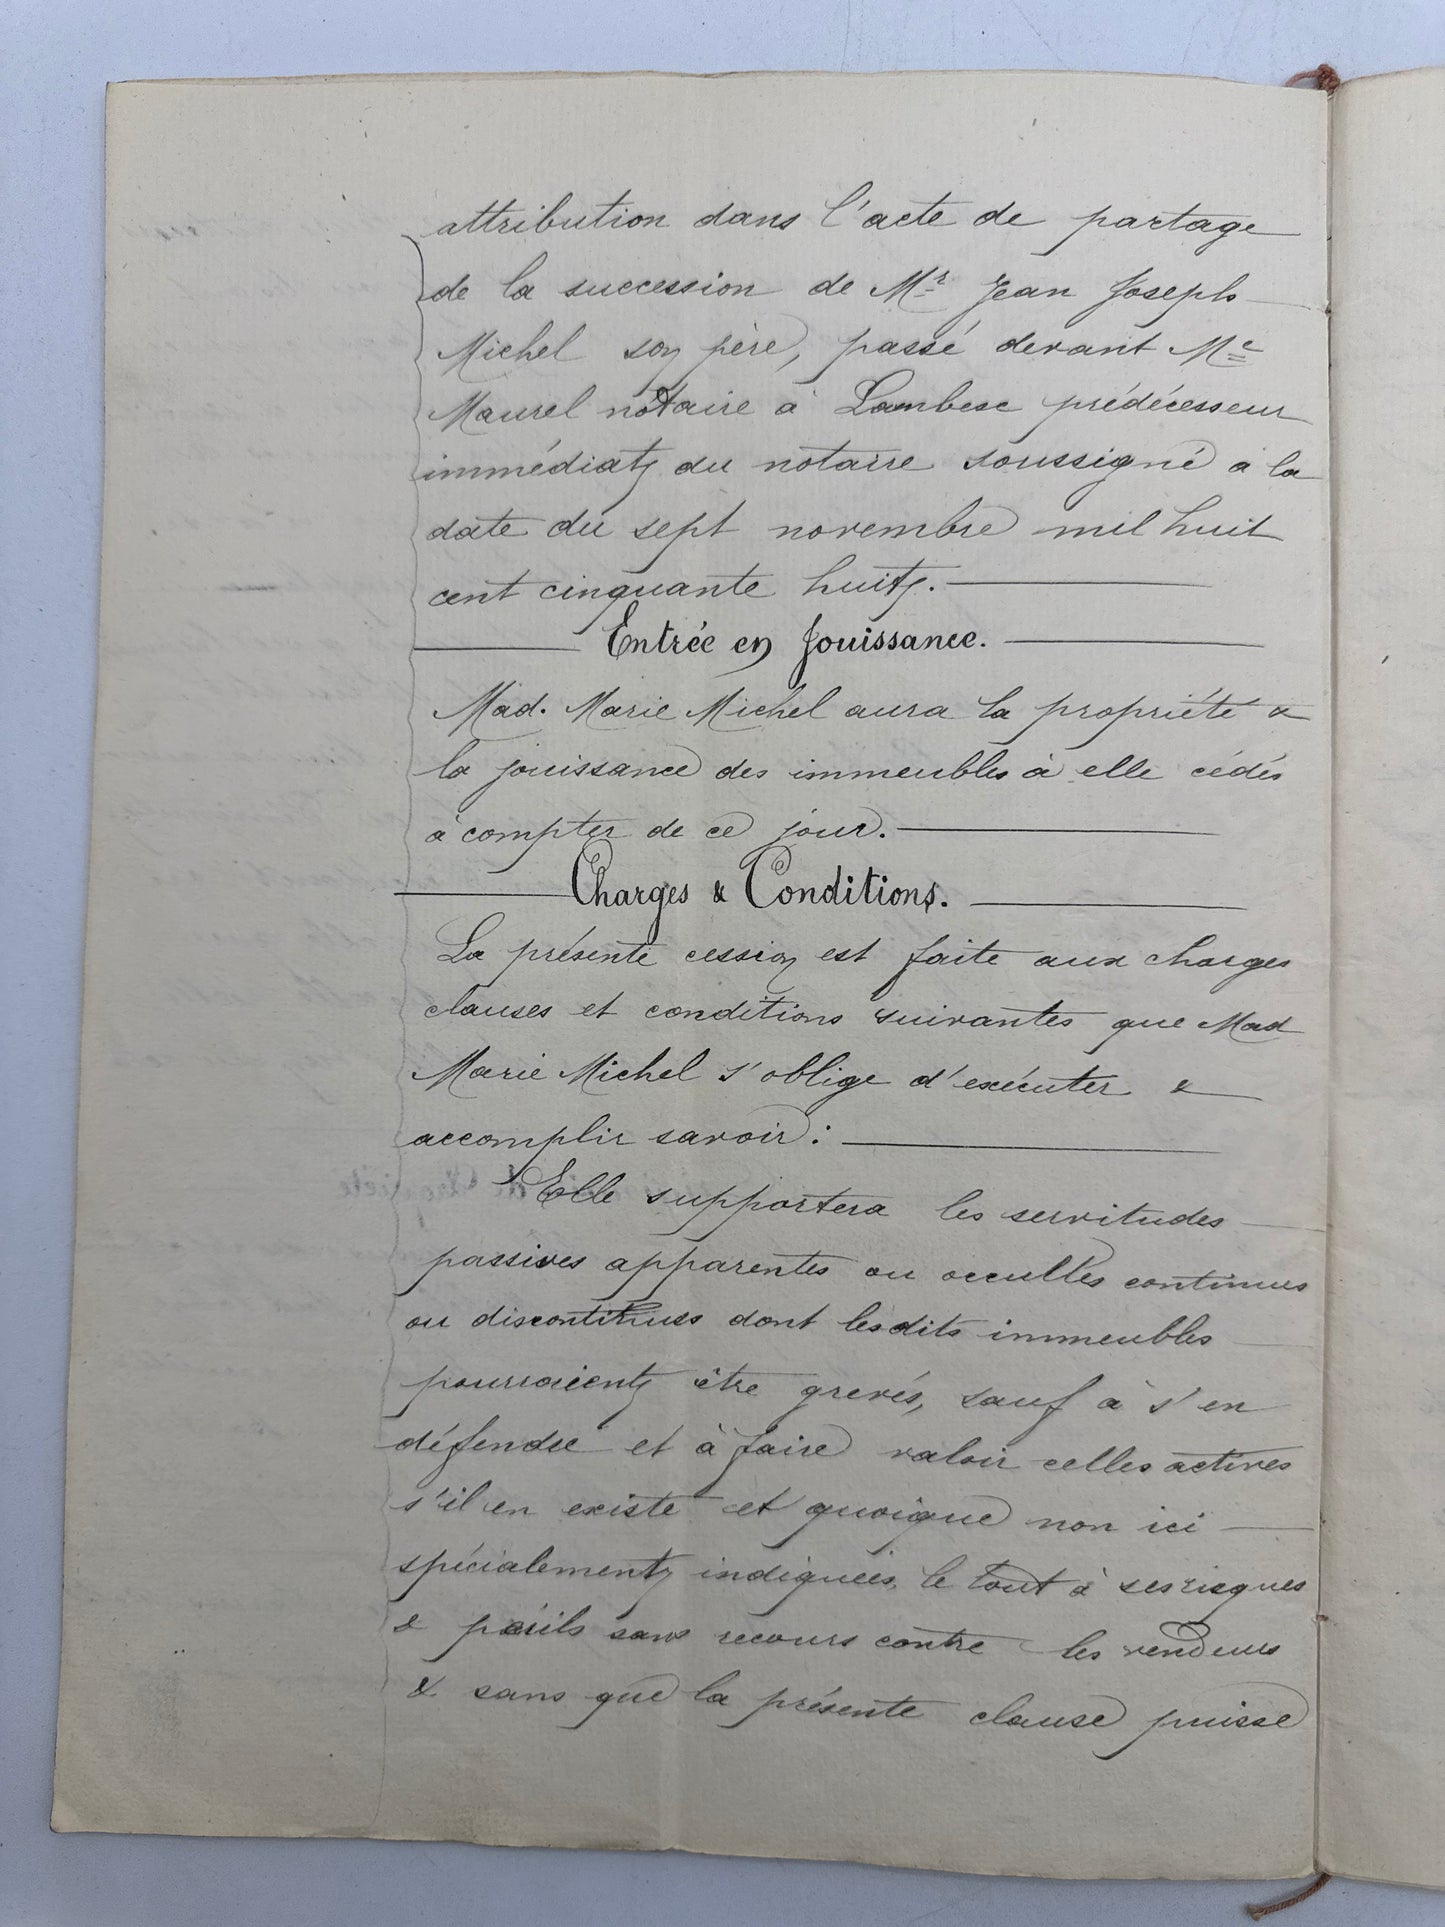 attribution dans l'acte de partage
de la succession de Mr Jean Joseph
Michel son père, passé devant Me
Maurel notaire à Lambesc prédécesseur
immédiat du notaire soussigné à la
date du sept novembre mil huit
cent cinquante huit.
Entrée en Jouissance.
Mad. Marie Michel aura la propriété &
la jouissance des immeubles à elle cédés
à compter de ce jour.
Charges & Conditions.
La présente cession est faite aux charges
clauses et conditions suivantes que Mad
Marie Michel s'oblige d'exécuter &
accomplir savoir :
Elle supportera les servitudes
passives apparentes ou occultes continues
ou discontinues dont lesdits immeubles
pourraient être grevés, sauf à s'en
défendre et à faire valoir celles actives
s'il en existe et quoique non ici
spécialement indiquées, le tout à ses risques
& périls sans recours contre les vendeurs
& sans que la présente clause puisse